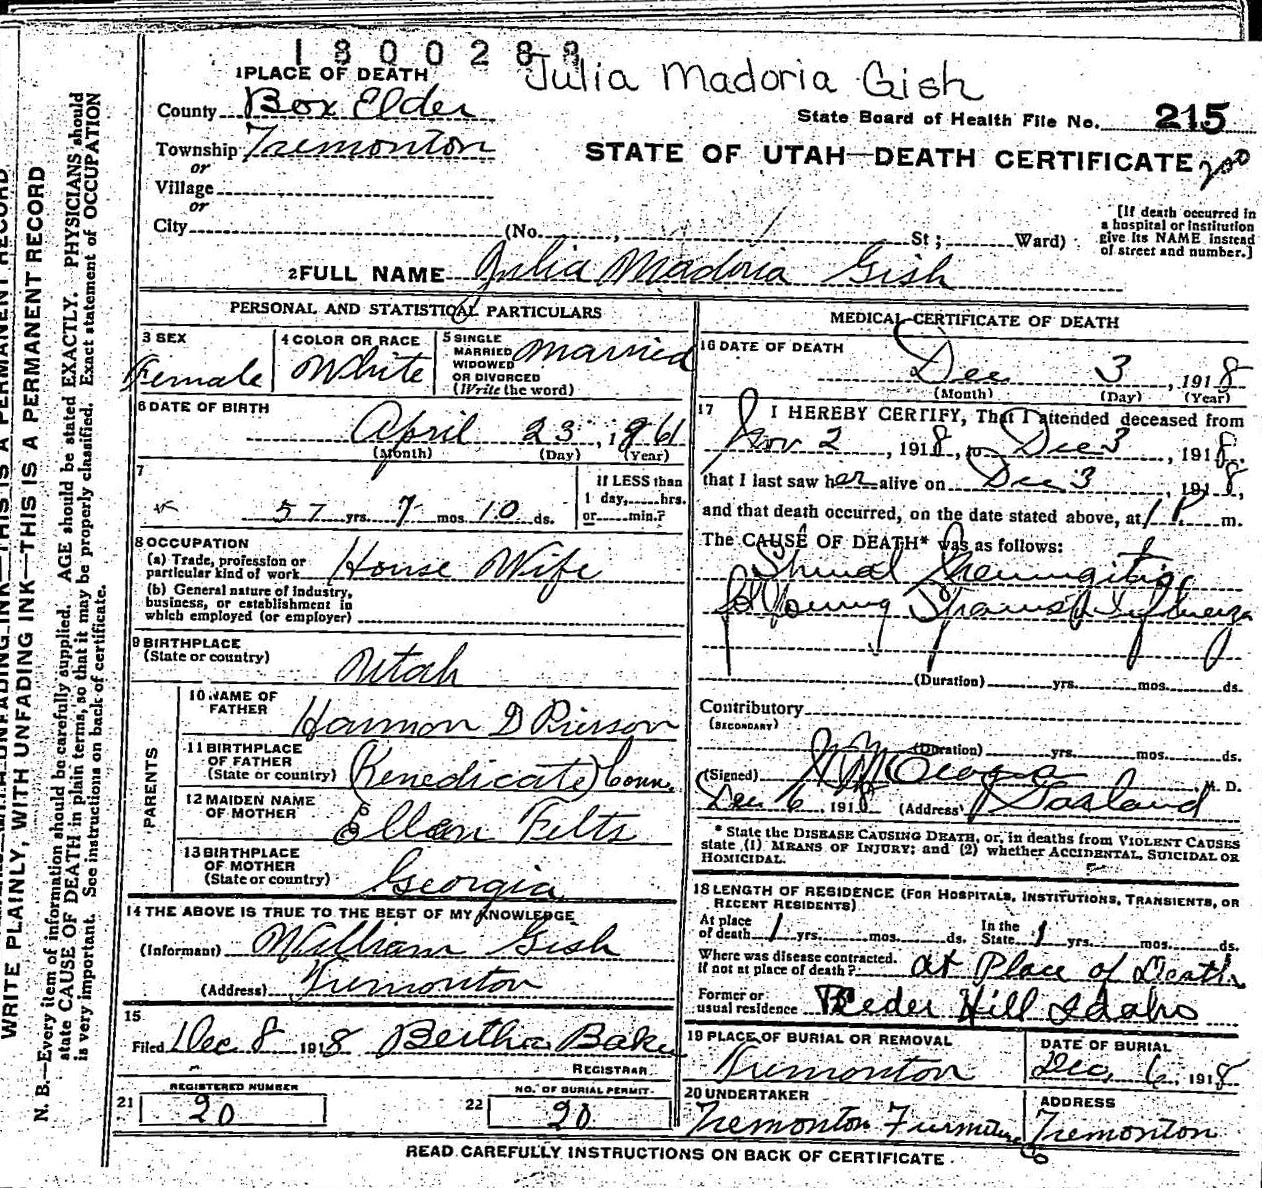 1800288
Julia Madoria Gish
1 PLACE OF DEATH
County Box Elder
State Board of Health File No. 215
Township Tremonton
or
STATE OF UTAH—DEATH CERTIFICATE 200
Village
or
City (No. , St; Ward)
[If death occurred in
a hospital or institution
give its NAME instead
of street and number.]
2 FULL NAME Julia Madoria Gish
PERSONAL AND STATISTICAL PARTICULARS
3 SEX
Female
4 COLOR OR RACE
White
5 SINGLE
MARRIED
WIDOWED
OR DIVORCED
(Write the word)
Married
6 DATE OF BIRTH
April 23, 1861
(Month) (Day) (Year)
7
57 yrs. 7 mos. 10 ds.
If LESS than
1 day, hrs.
or min.?
8 OCCUPATION
(a) Trade, profession or
particular kind of work House Wife
(b) General nature of industry,
business, or establishment in
which employed (or employer)
9 BIRTHPLACE
(State or country) Utah
PARENTS
10 NAME OF
FATHER Harmon D Pierson
11 BIRTHPLACE
OF FATHER
(State or country) (Kenedicate) Conn.
12 MAIDEN NAME
OF MOTHER Ellen Felts
13 BIRTHPLACE
OF MOTHER
(State or country) Georgia
14 THE ABOVE IS TRUE TO THE BEST OF MY KNOWLEDGE
(Informant) William Gish
(Address) Tremonton
15
Filed Dec 8 1918 Bertha Baker
REGISTRAR
REGISTERED NUMBER
21 20
NO. OF BURIAL PERMIT
22 20
MEDICAL CERTIFICATE OF DEATH
16 DATE OF DEATH
Dec 3, 1918
(Month) (Day) (Year)
17 I HEREBY CERTIFY, That I attended deceased from
Nov 2, 1918, to Dec 3, 1918,
that I last saw her alive on Dec 3, 1918,
and that death occurred, on the date stated above, at 1 P. m.
The CAUSE OF DEATH* was as follows:
Meningitis
Influenza
(Duration) yrs. mos. ds.
Contributory
(SECONDARY)
(Duration) yrs. mos. ds.
(Signed) M. D.
Dec 6, 1918 (Address) Garland
* State the DISEASE CAUSING DEATH, or, in deaths from VIOLENT CAUSES
state (1) MEANS OF INJURY; and (2) whether ACCIDENTAL, SUICIDAL OR
HOMICIDAL.
18 LENGTH OF RESIDENCE (FOR HOSPITALS, INSTITUTIONS, TRANSIENTS, OR
RECENT RESIDENTS)
At place
of death 1 yrs. mos. ds.
In the
State 1 yrs. mos. ds.
Where was disease contracted.
if not at place of death? at Place of Death
Former or
usual residence Hill Idaho
19 PLACE OF BURIAL OR REMOVAL
Tremonton
DATE OF BURIAL
Dec. 6, 1918
20 UNDERTAKER
Tremonton Furniture Co
ADDRESS
Tremonton
READ CAREFULLY INSTRUCTIONS ON BACK OF CERTIFICATE
WRITE PLAINLY, WITH UNFADING INK—THIS IS A PERMANENT RECORD
N. B.—Every item of information should be carefully supplied. AGE should be stated EXACTLY. PHYSICIANS should
state CAUSE OF DEATH in plain terms, so that it may be properly classified. Exact statement of OCCUPATION
is very important. See instructions on back of certificate.